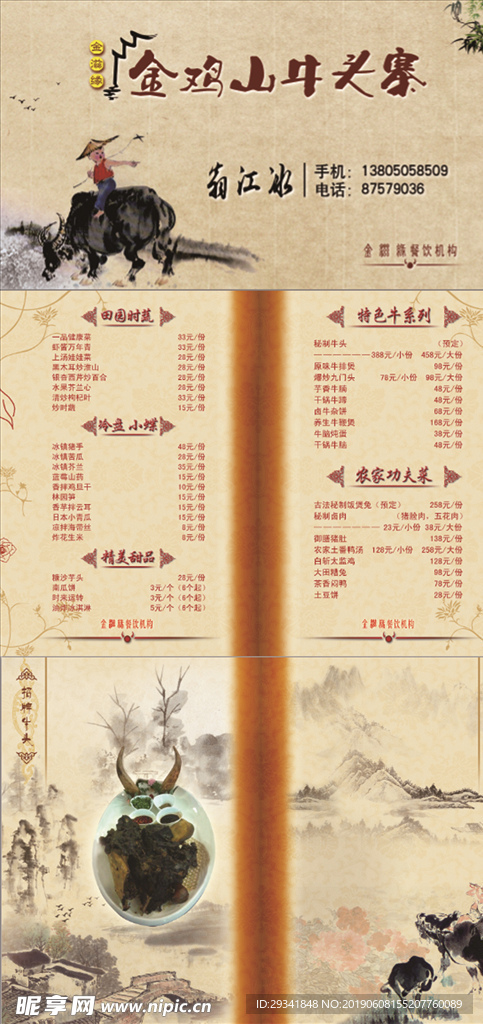 金滋缘
金鸡山牛头寨
翁江冰
手机：13805058509
电话：87579036
金翻缘餐饮机构
田园时蔬
一品健康菜 33元/份
虾酱万年青 33元/份
上汤娃娃菜 28元/份
黑木耳炒淮山 28元/份
银杏西芹炒百合 28元/份
水果芥兰心 28元/份
清炒枸杞叶 33元/份
炒时蔬 15元/份
冷盘 小蝶
冰镇猪手 48元/份
冰镇苦瓜 28元/份
冰镇芥兰 35元/份
蓝莓山药 15元/份
香拌鸡旦干 10元/份
林园笋 15元/份
香芊拌云耳 15元/份
日本小青瓜 15元/份
凉拌海带丝 8元/份
炸花生米 8元/份
精美甜品
糖沙芋头 28元/份
南瓜饼 3元/个（6个起）
时来运转 3元/个（6个起）
油炸冰淇淋 5元/个（6个起）
金翻缘餐饮机构
特色牛系列
秘制牛头 （预定）
——————388元/小份 458元/大份
原味牛排煲 98元/份
爆炒九门头 78元/小份 98元/大份
芋香牛腩 48元/份
干锅牛蹄 48元/份
卤牛杂饼 68元/份
养生牛鞭煲 168元/份
牛脑炖蛋 38元/份
干锅牛肠 48元/份
农家功夫菜
古法秘制饭煲兔（预定） 258元/份
秘制卤肉 （猪脸肉，五花肉）
—————— 23元/小份 38元/大份
御膳猪肚 138元/份
农家土番鸭汤 128元/小份 258元/大份
白斩太监鸡 128元/份
大田猪兔 98元/份
茶香闷鸭 78元/份
土豆饼 28元/份
金翻缘餐饮机构
招牌牛头
昵享网 www.nipic.cn
ID:29341848 NO:20190608155207760089